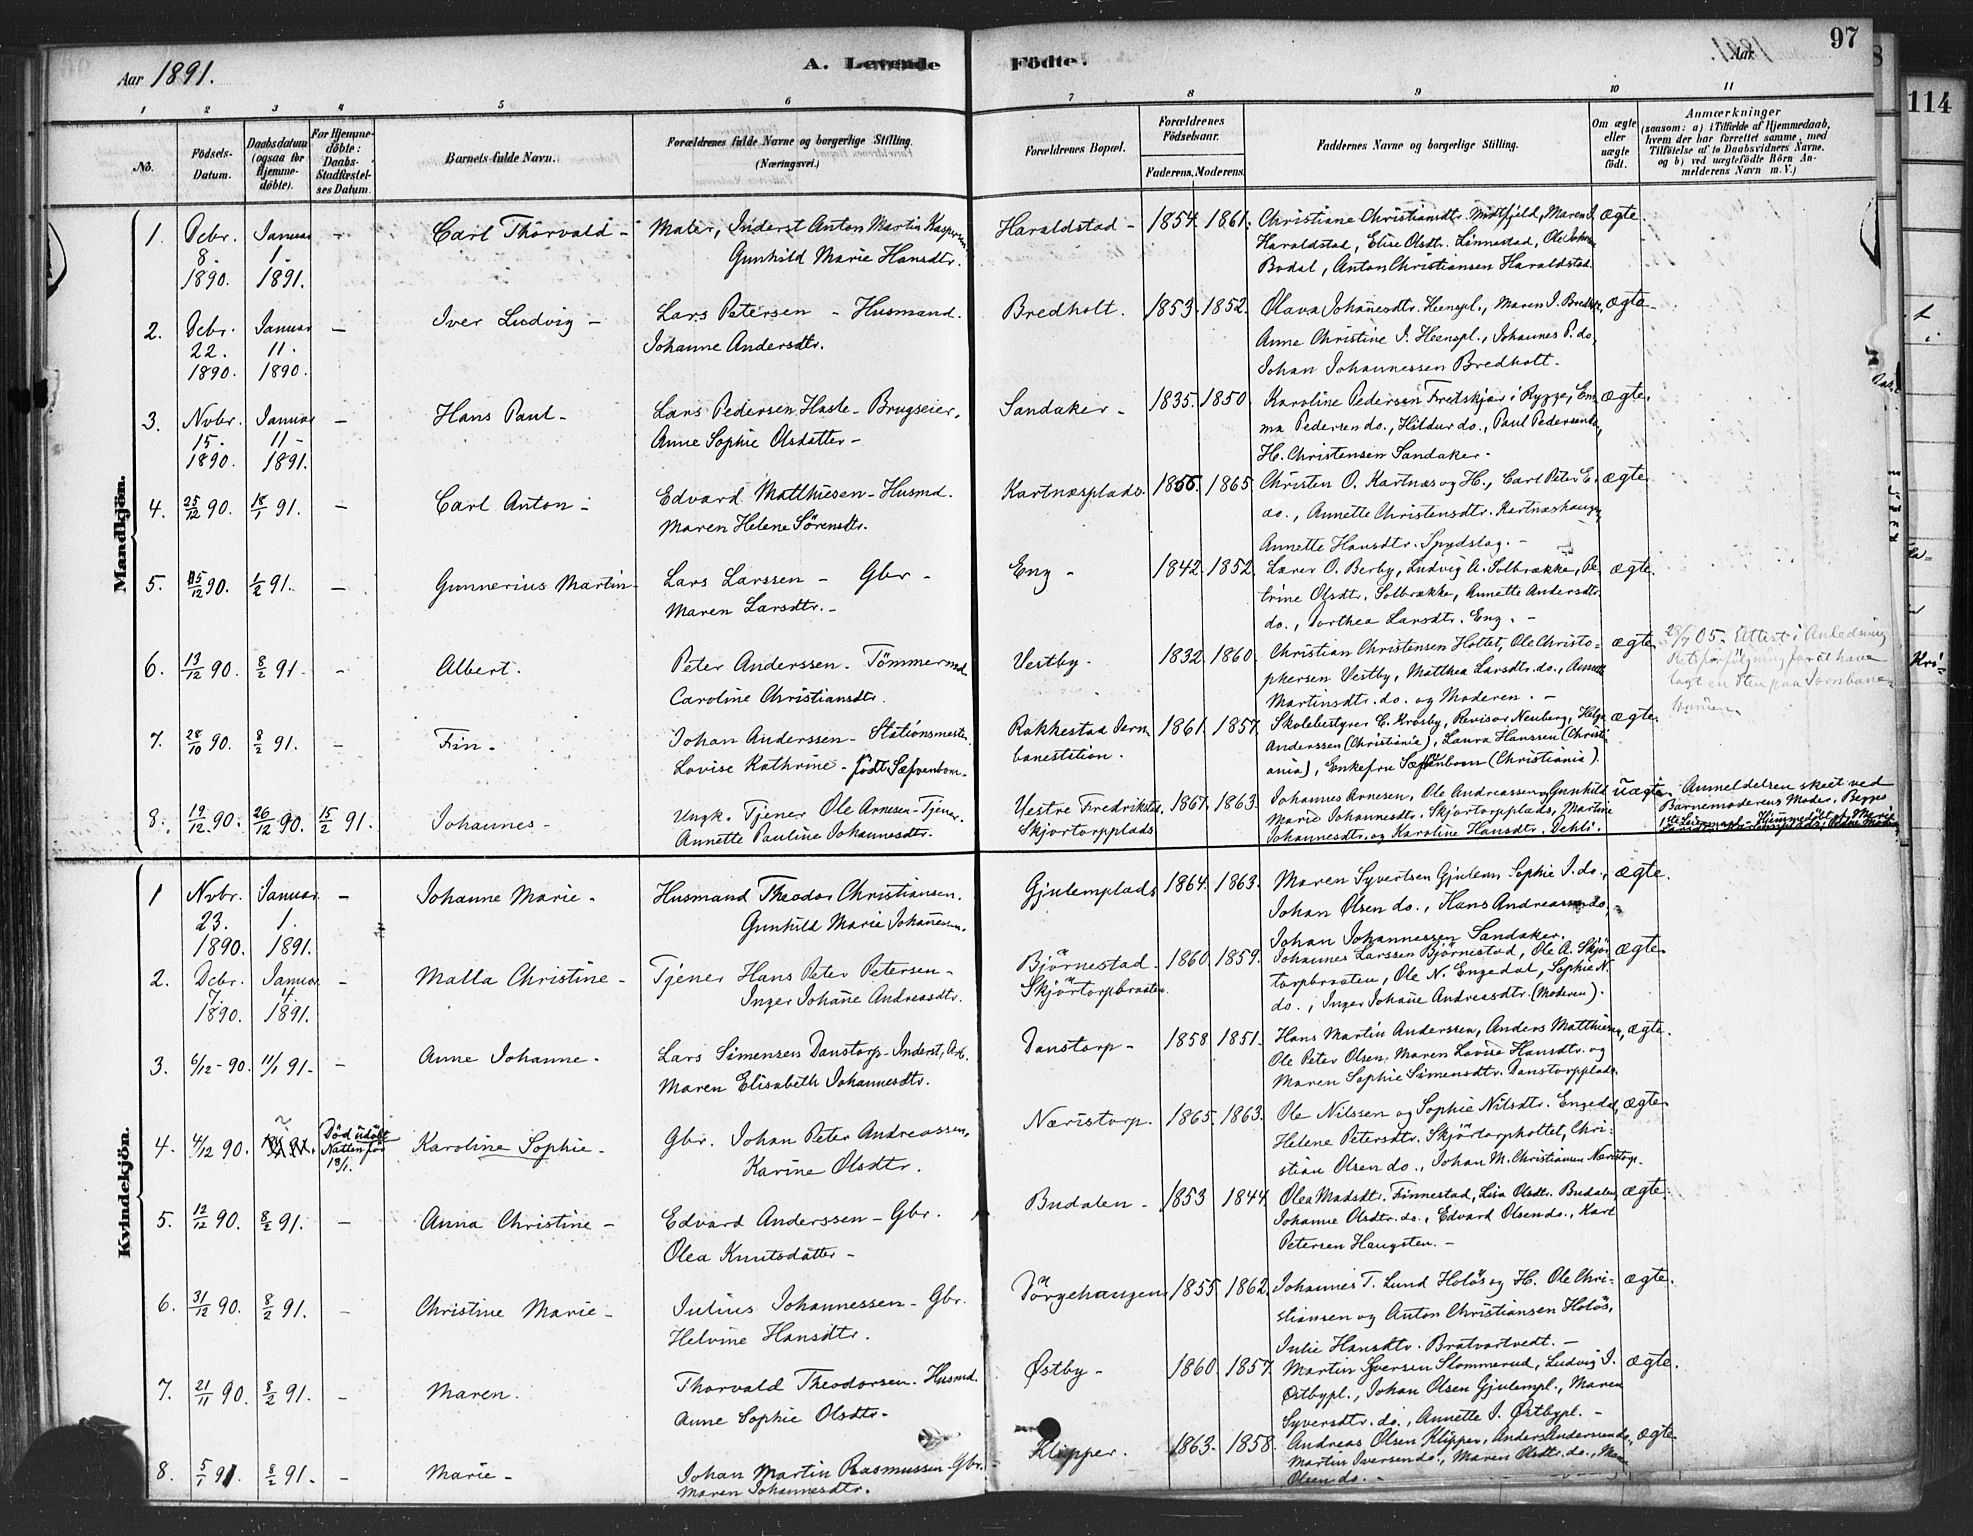 97
Aar 1891. A. Levende Födte. Aar
114
1 2 3 4 5 6 7 8 9 10 11
No. Fødsels-Datum. Daabsdatum (ogsaa for Hjemme-döbte). For Hjemme-döbte: Daabs-Stadfæstel-ses Datum. Barnets fulde Navn. Forældrenes fulde Navne og borgerlige Stilling. (Næringsvei.) Forældrenes Bopæl. Forældrenes Födselsaar. Faderens. Moderens. Faddernes Navne og borgerlige Stilling. Om ægte eller uægte födt. Anmærkninger (saasom: a) i Tilfælde af Hjemmedaab, hvem der har forrettet samme, med Tilföielse af to Daabsvidners Navne. og b) ved uægtefödte Börn An-melderens Navn m. V.)
Mandkjön.
1. Decbr. Januar - Carl Thorvald - Maler, Inderst Anton Martin Kaspersen Haraldstad - 1854. 1861. Christiane Christiansdtr. Midtfjeld, Maren I. ægte.
8. 1. Gunhild Marie Hansdtr. Haraldstad, Elise Olsdtr. Linnestad, Ole Johan
1890. 1891. Bodal, Anton Christiansen Haraldstad.
2. Decbr. Januar - Iver Ludvig - Lars Petersen - Husmand. Bredholt. 1853. 1852. Olava Johanesdtr. Heenspl., Maren I. Bredholt, ægte.
22. 11. Johanne Andersdtr. Anne Christine I. Heenspl., Johannes P. do,
1890. 1890. Johan Johannessen Bredholt.
3. Novbr. Januar - Hans Paul - Lars Pedersen Haste - Brugseier, Sandaker - 1835. 1850. Karoline Pedersen Fredskjær i Rygge, Em ægte.
15. 11 - Anne Sophie Olsdatter - ma Pedersen do., Hildur do., Paul Pedersen do,
1890. 1891. H. Christensen Sandaker -
4. 25/12 90. 18/1 91. - Carl Anton - Edvard Matthiesen - Husmd. Kartnæsplads. 1865. Christen O. Kartnæs og H., Carl Peter E. ægte.
Maren Helene Sörensdtr. do., Annette Christensdtr. Kartnæshaugen,
Annette Hansdtr. Spydslag. -
5. 15/12 90. 1/2 91. - Gunnerius Martin - Lars Larssen - Gbr - Eng - 1842. 1852. Lærer O. Berby, Ludvig A. Solbrække, Pe ægte.
Maren Larsdtr. - trine Olsdtr. Solbrække, Annette Andersdtr.
do., Dorthea Larsdtr. Eng. -
6. 13/12 90. 8/2 91. - Albert. Peter Anderssen - Tömmermd. Vestby - 1832. 1860. Christian Christensen Hottet, Ole Christo- ægte. 28/7 05. Attest i Anledning
Caroline Christiansdtr. phersen Vestby, Matthea Larsdtr. do., Annette Retsforfölgning for at have
Martinsdtr. do. og Moderen. - lagt en Sten paa Jernbane-
7. 28/10 90. 8/2 91. - Fin - Johan Anderssen - Stationsmester Rakkestad Jern 1861. 1857. Skolebestyrer C. Krosby, Revisor Neuberg, Helga ægte.
Lovise Kathrine - födt Sæfvenbom. banestation. Anderssen (Christiania), Laura Hanssen (Christi
ania), Enkefru Sæfvenbom (Christiania).
8. 19/12 90. 26/12 90. 15/2 91. Johannes - Ungk. Tjener Ole Arnesen - Tjener. Vestre Fredrikstad 1867. 1863. Johannes Arnesen, Ole Andreassen, Gunhild uægte. Anmeldelsen skeet ved
Annette Pauline Johannesdtr. Skjortorpplads. Marie Johannesdtr. Skjortorpplads, Martine Barnemoderens Moder, Begges
Johannesdtr. og Karoline Hansdtr. Dehli.
Kvindekjön.
1 Novbr. Januar - Johanne Marie - Husmand Theodor Christiansen. Gjulemplads 1864. 1863. Maren Syvertsen Gjulem, Sophie I. do., ægte.
23. 1. Gunhild Marie Johannesen. Johan Olsen do., Hans Andreassen do,
1890. 1891. Johan Johannessen Sandaker.
2. Decbr. Januar - Malla Christine - Tjener Hans Peter Petersen - Björnestad - 1860. 1859. Johannes Larssen Björnestad, Ole A. Skjör ægte.
7. 4. Inger Johane Andreasdtr. Skjörtorpbraaten. torpbraaten, Ole N. Engedal, Sophie N.
1890. 1891. do., Inger Johane Andreasdtr. (Moderen).
3. 6/12 - 90. 11/1 91. - Anne Johanne - Lars Simensen Danstorp - Inderst, Arb. Danstorp - 1858 1851. Hans Martin Anderssen, Anders Matthiesen, ægte.
Maren Elisabeth Johannesdtr. Ole Peter Olsen, Maren Lovise Hansdtr. og
Maren Sophie Simensdtr. Danstorpplads.
4. 4/12 90. Död udöbt Natten før 18/1. Karoline Sophie - Gbr. Johan Peter Andreassen, Næristorp. 1865. 1863. Ole Nilssen og Sophie Nilsdtr. Engedal, ægte.
Karine Olsdtr. Helene Petersdtr. Skjörtorphottet, Chri-
stian Olsen do., Johan M. Christiansen Næristorp.
5. 12/12 90. 8/2 91. - Anna Christine - Edvard Anderssen - Gbr. Budalen - 1853 1844. Olea Madsdtr. Finnestad, Lisa Olsdtr. Budalen, ægte.
Olea Knutsdatter - Johanne Olsdtr. do., Edvard Olsen do., Karl
Petersen Haugsten. -
6. 31/12 90. 8/2 91. - Christine Marie - Julius Johannessen - Gbr. Dörgehaugen 1855. 1862. Johannes T. Lund Holös og H. Ole Chri- ægte.
Helvine Hansdtr. stiansen og Anton Christiansen Holös,
Julie Hansdtr. Bratvartvedt. -
7. 21/11 90. 8/2 91. - Maren. Thorvald Theodorsen - Husmd. Østby - 1860 1857. Martin Iversen Slommerud, Ludvig I. ægte.
Anne Sophie Olsdtr - Østbypl., Johan Olsen Gjulempl., Maren
Syversdtr. do., Annette I. Østbypl. -
8. 5/1 91 8/2 91. - Marie - Johan Martin Rasmussen - Gbr. Klipper. 1863. 1858. Andreas Olsen Klipper, Anders Andersen do., ægte.
Maren Johannesdtr. Martin Iversen do., Maren Olsdtr. do.,
Olsen do. -